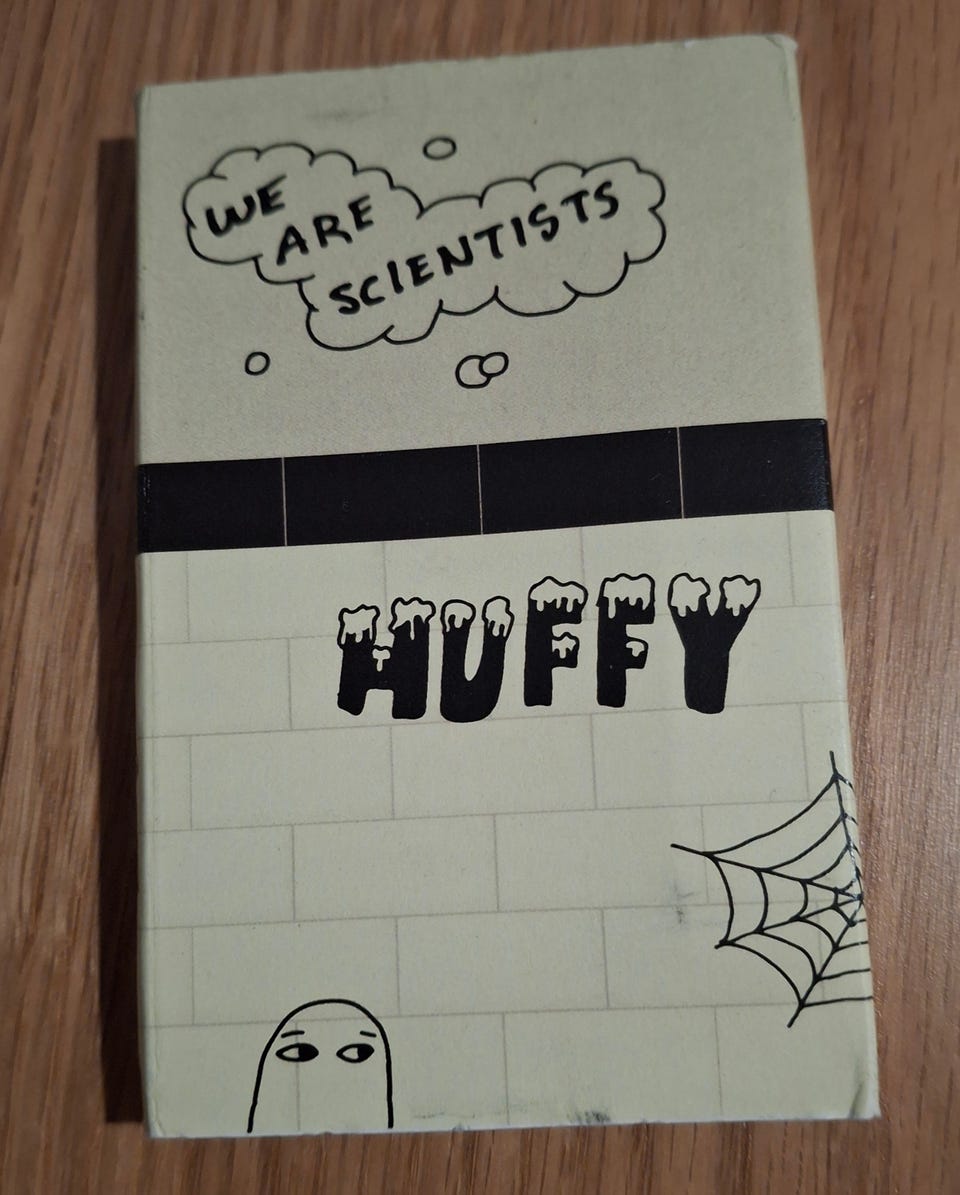 WE
ARE
SCIENTISTS
HUFFY